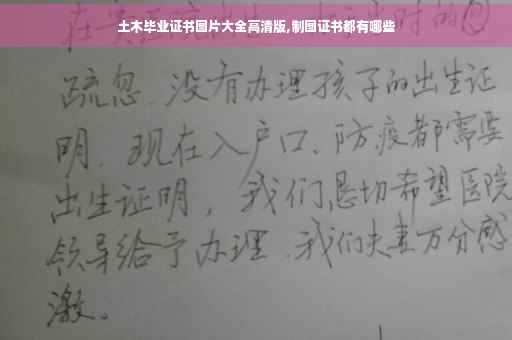 土木毕业证书图片大全高清版,制图证书都有哪些
疏忽、没有办理孩子的出生证
明、现在入户口、防疫都需要
出生证明，我们恳切希望医院
领导给予办理、我们夫妻万分感
激。